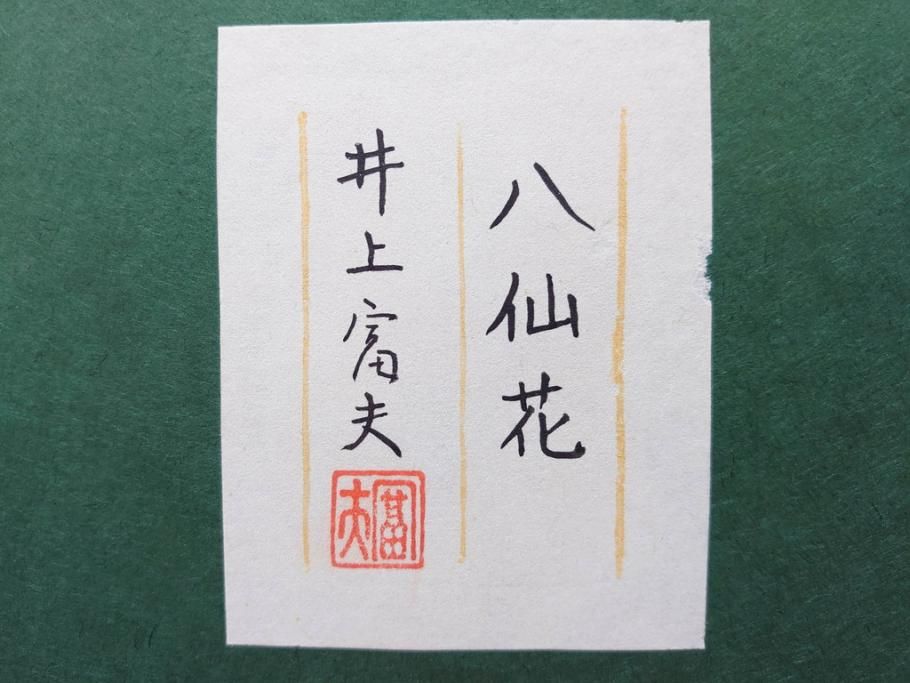 八仙花
井上富夫
富夫